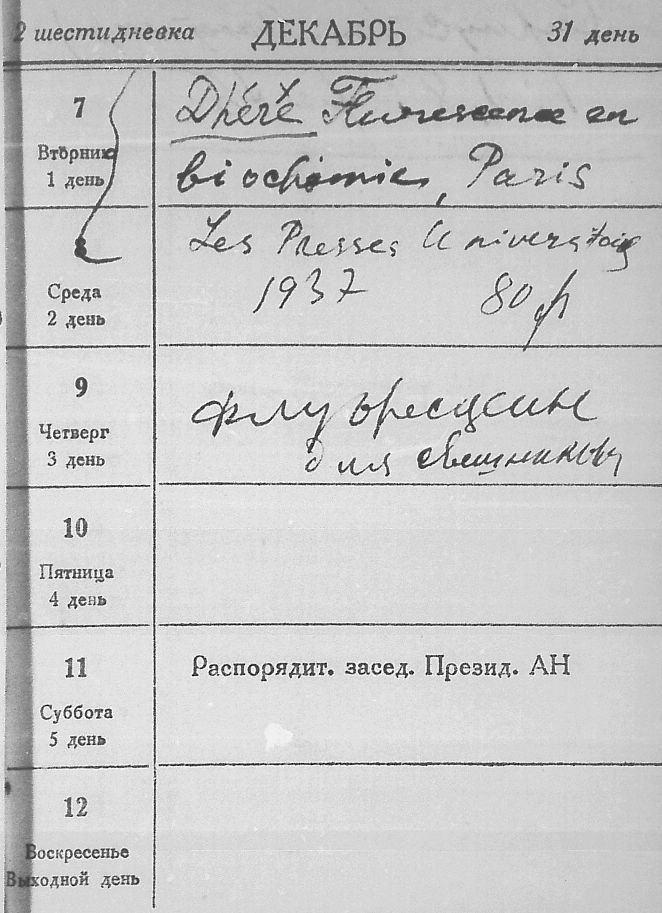 2 шестидневка ДЕКАБРЬ 31 день
7
Вторник
1 день
Dhéré Fluorescence en
biochimie, Paris
8
Среда
2 день
Les Presses Universitaires
1937 80 fr
9
Четверг
3 день
флуоресцеин
для Свешникова
10
Пятница
4 день
11
Суббота
5 день
Распорядит. засед. Презид. АН
12
Воскресенье
Выходной день